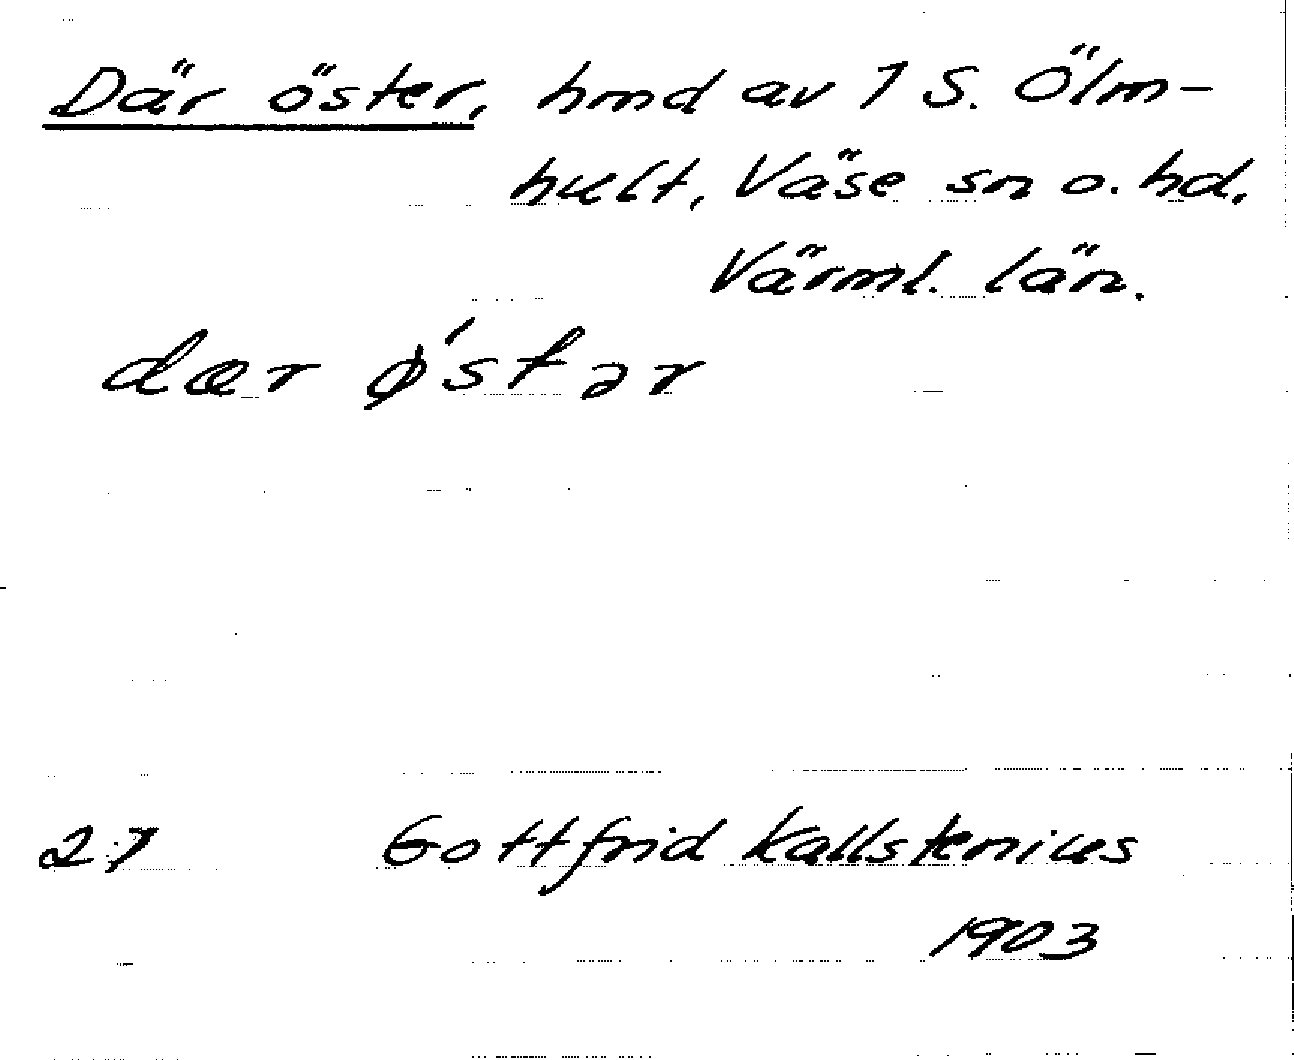 Där öster, hmd av 1 S. Ölm-
hult, Väse sn o. hd.
Värml. län.
dær ǿstər
27 Gottfrid Kallstenius
1903